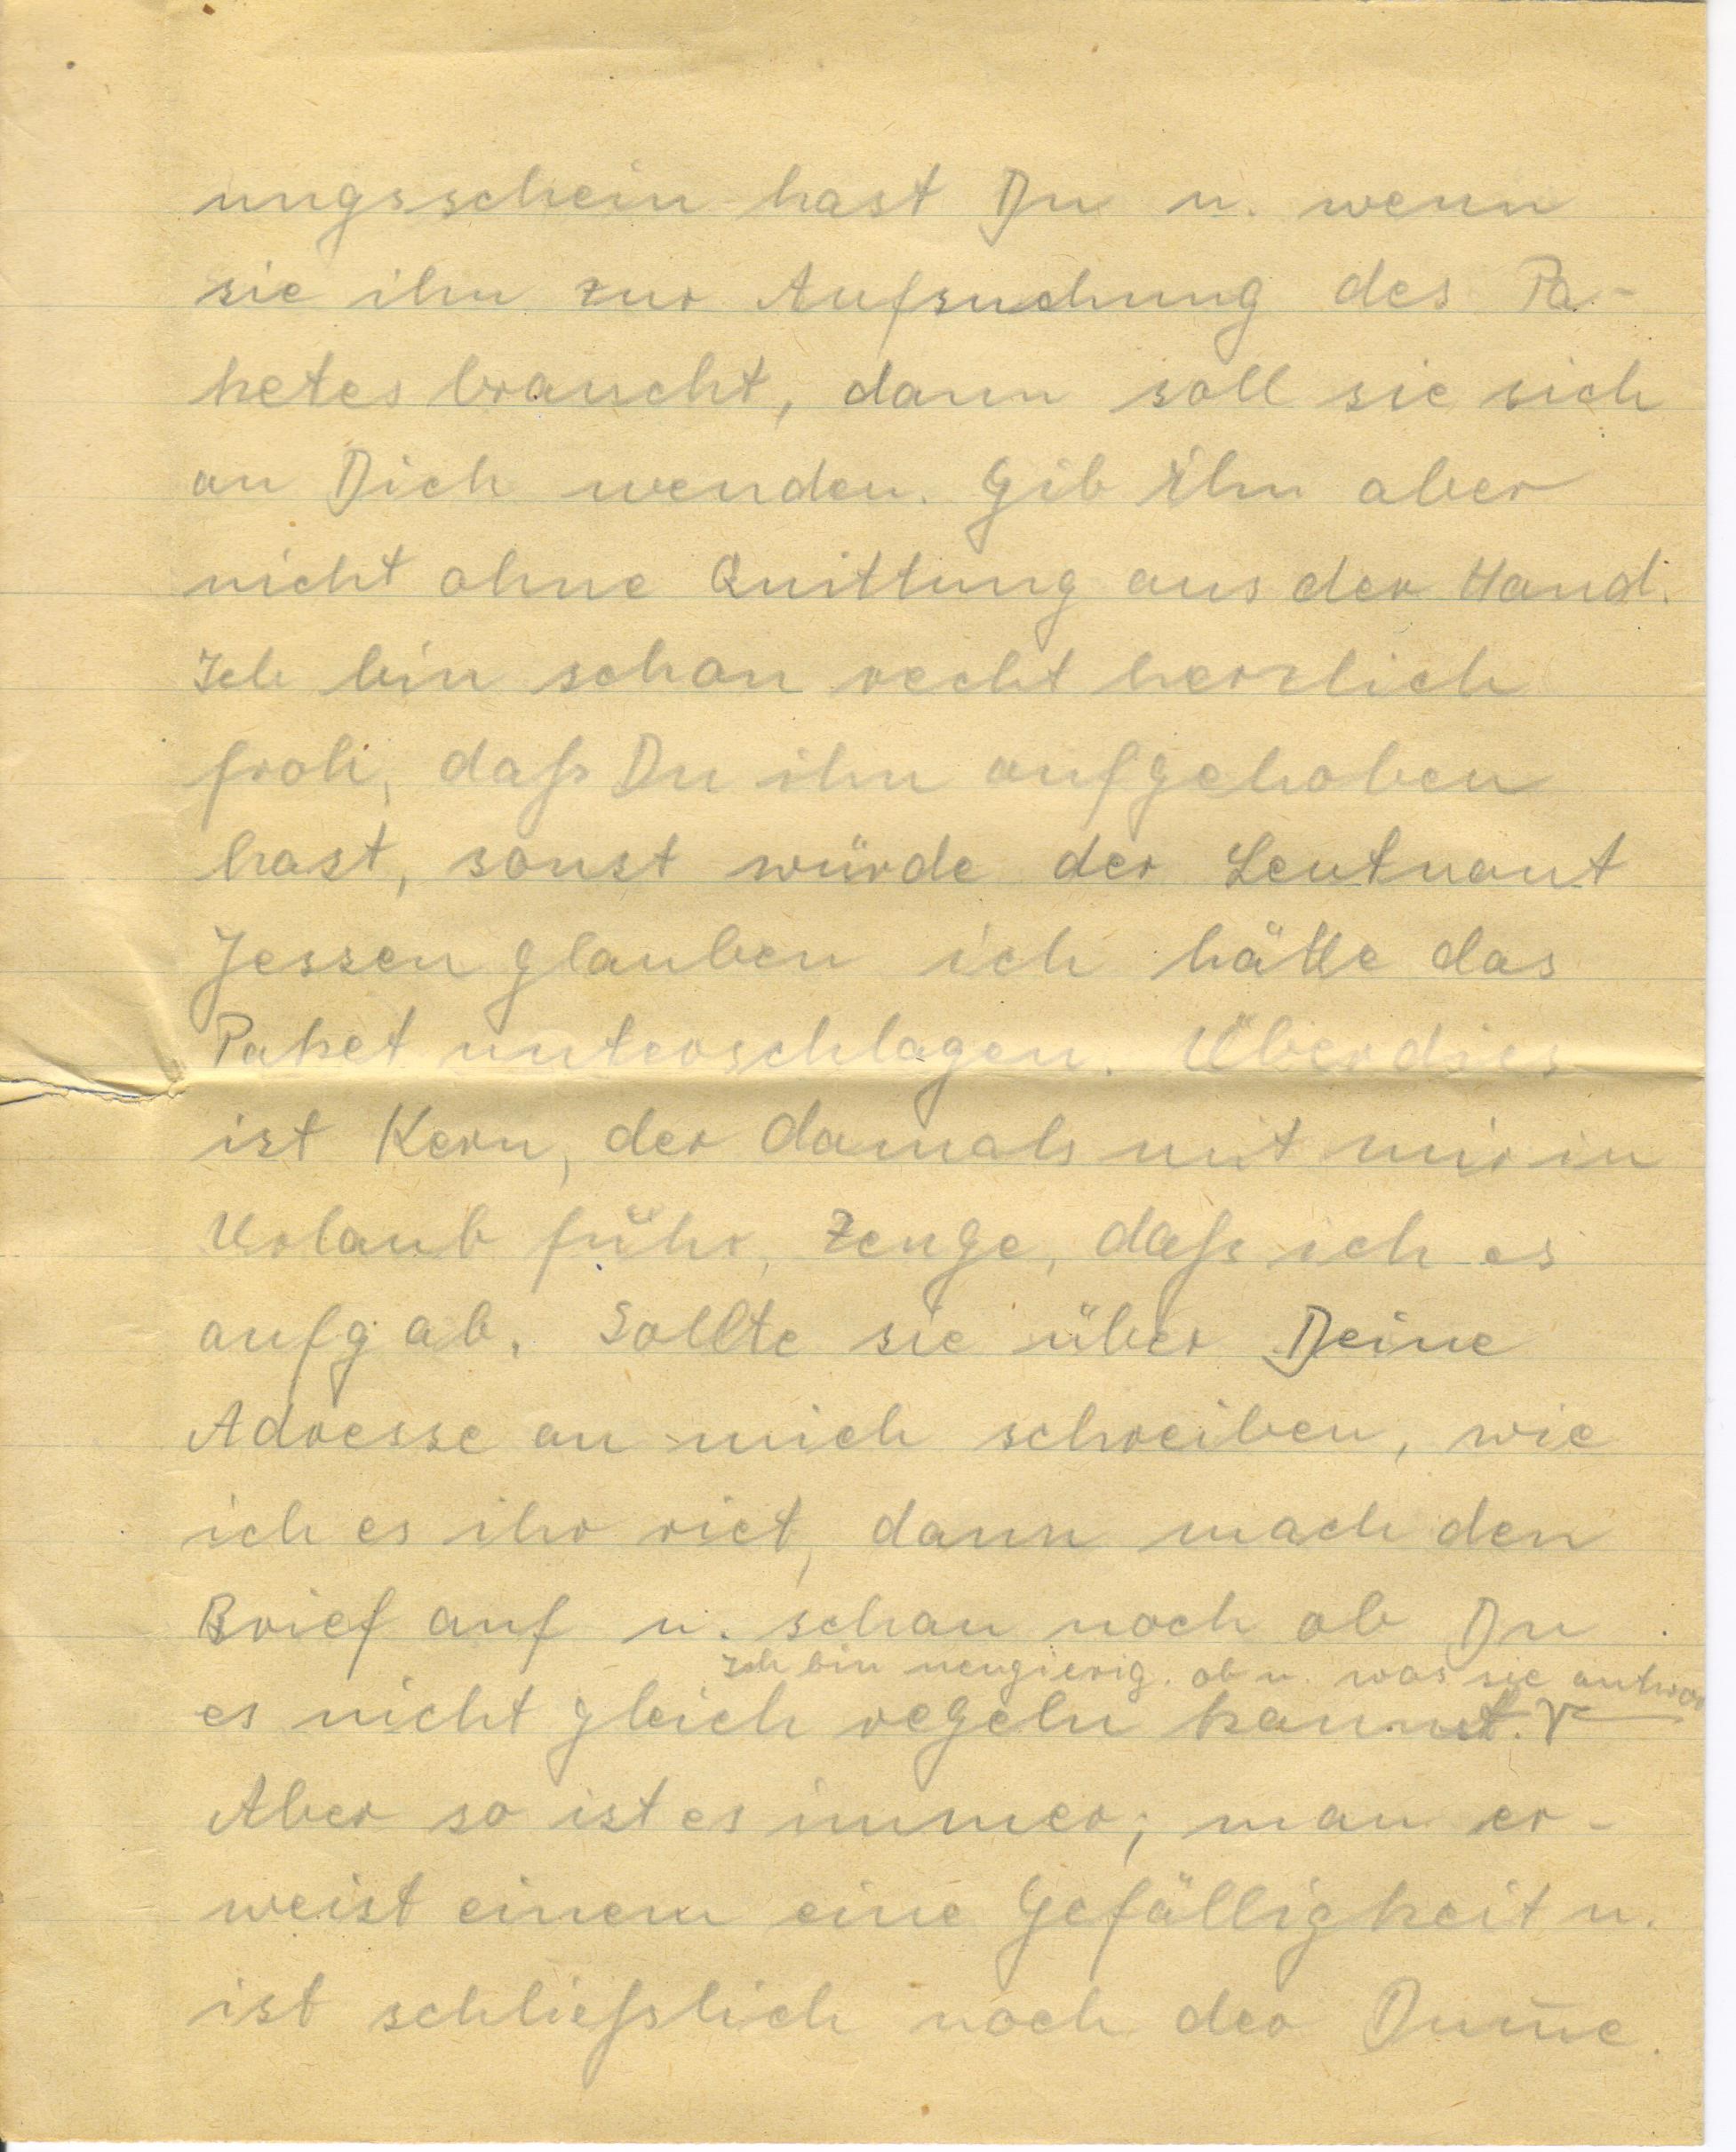 ungsschein hast Du u. wenn
sie ihn zur Aufsuchung des Pa-
ketes braucht, dann soll sie sich
an Dich wenden. Gib ihn aber
nicht ohne Quittung aus der Hand.
Ich bin schon recht herzlich
froh, daß Du ihn aufgehoben
hast, sonst würde der Leutnant
Jessen glauben ich hätte das
Paket unterschlagen. Überdies
ist Kern, der damals mit mir in
Urlaub fuhr, Zeuge, daß ich es
aufgab. Sollte sie über Deine
Adresse an mich schreiben, wie
ich es ihr riet, dann mach den
Brief auf u. schau nach ob Du
Ich bin neugierig, ob u. was sie antwor
es nicht gleich regeln kannst.
Aber so ist es immer; man er-
weist einem eine Gefälligkeit u.
ist schließlich noch der Dum̅e.